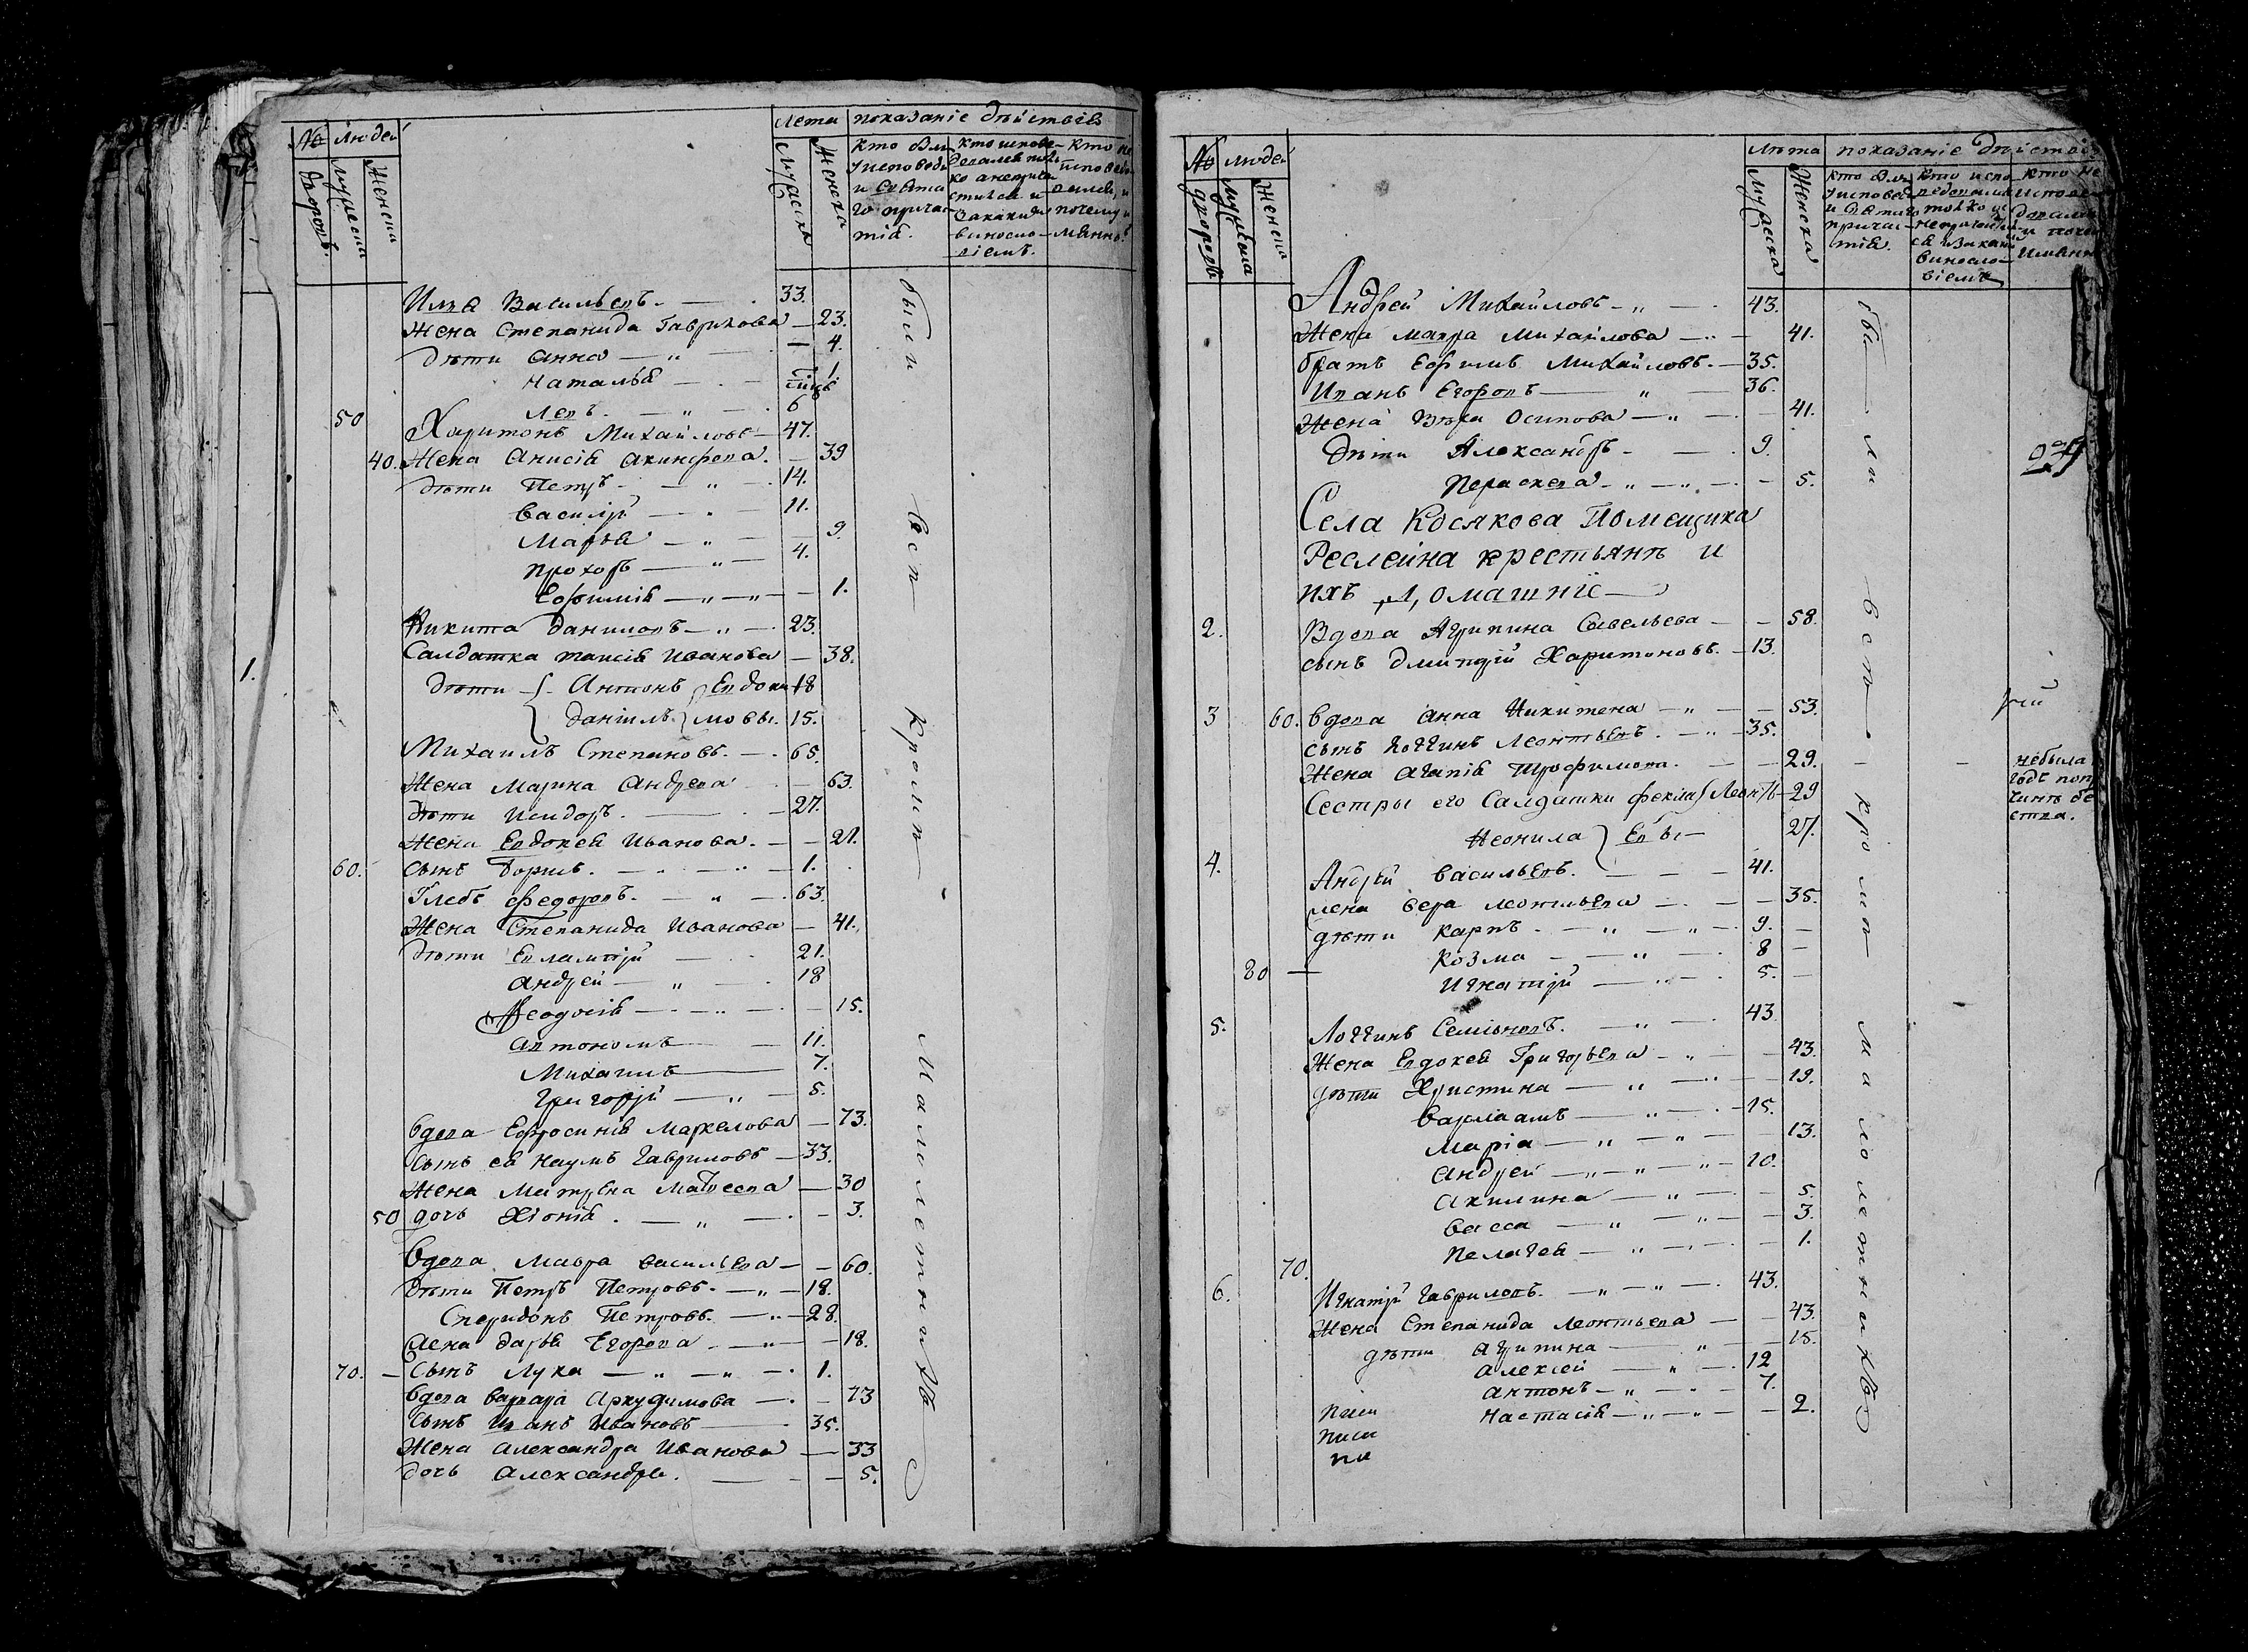 № людей
Лета показаніе дѣйствiв
дворовъ.
мужеска
женска
Мужска
Женска
кто были
Уисповеди
и свята
го причас
тiя.
Кто испове-
дался толь
ко а непріча
стился и
За какимъ
виносло-
вiемъ.
Кто не
исповедо
вался, и
почему и
мянно.
Илiя Васильевъ. — 33.
Жена Степанида Гаврилова — 23.
дѣти Анна — 4.
Наталья — 1
Левъ. — 6
50 Харитонъ Михайловъ — 47.
40. Жена Анисiя Акинфева. — 39
дѣти Петръ — 14.
Василiй — 11.
Марья — 9.
Прохоръ — 4.
Ефимiя — 1.
Никита Даниловъ — 23.
1. Салдатка таисiя Иванова — 38.
дѣти Антонъ Евдоки 18
Данiилъ мовы. 15.
Михаилъ Степановъ. — 65.
Жена Марина Андреева — 63.
дѣти Исидоръ. — 27.
Жена Евдокея Иванова. — 21.
60. сынъ Борисъ. — 1.
Глебъ Федоровъ. — 63.
Жена Степанида Иванова — 41.
дѣти Евлампiй — 21.
Андрей — 18
Феодосiя — 15.
Автономъ — 11.
Михаилъ — 7.
Григорiй — 5.
Вдова Ефросинiя Маркелова — 73.
сынъ ея Наумъ Гавриловъ — 33.
Жена Матрена Матвеева — 30
50 дочь Хiонiя. — 3.
Вдова Мавра Васильева — 60.
дѣти Петръ Петровъ. — 18.
Спиридонъ Петровъ. — 28.
Жена Дарья Егорова — 18.
70. — Сынъ Лука — 1.
Вдова Варвара Аркудимова — 73
сынъ Иванъ Ивановъ — 35.
Жена Александра Иванова — 33
дочь Александра. — 5.
были всп кромп Малолетнихъ
№ людей
Лѣта показанiе дѣйствiв
дворовъ
мужеска
Женска
Мужеска
Женска
кто был
Уисповед
и Святаго
причас-
тiя.
Кто испо
ведовался
толко и
непричастил
ся и Закаки
виносло-
вiемъ
кто не
испове-
довалис
и почем
имянно
Андрей Михайловъ — 43.
Жена Мавра Михайлова — 41.
братъ Ефимъ Михайловъ. — 35.
Иванъ Егоровъ — 36.
Жена Вѣра Осипова — 41.
дѣти Александръ — 9.
Пераскева — 5.
Села Косякова Помещика
Реслейна крестьянъ и
ихъ домашнiе
2. Вдова Агрипина Савельева — 58.
сынъ Дмитрiй Харитоновъ. — 13.
3 60. Вдова Анна Никитена — 53.
сынъ Логгинъ Леонтьевъ. — 35.
Жена Агапiя Трофимова. — 29.
небыла
Сестры его Салдатки Фекла Леонть 29
Неонила евы — 27.
4. Андрей Васильевъ. — 41.
жена Вера Леонтьева — 35.
дѣти Карпъ. — 9.
Козма — 8
80 — Игнатiй — 5.
5. Логгинъ Семiоновъ. — 43
Жена Евдокея Григорьева — 43.
дѣти Христина — 19.
Варлаамъ — 15.
Марiа — 13.
Андрей — 10.
Акилина — 5.
Васса — 3.
70. Пелагея — 1.
6. Игнатiй Гавриловъ. — 43.
Жена Степанида Леонтьева — 43.
дѣти Агрипина — 15.
Алексей — 12
Антонъ — 7.
Настасiя — 2.
пиши
пиши
пи
бы ли всѣ кромѣ малолетнихъ